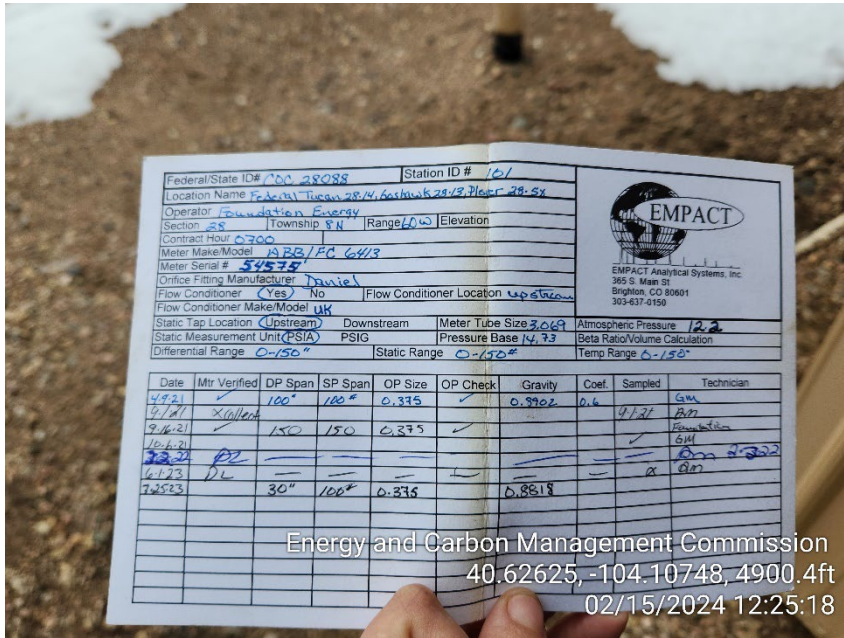 Federal/State ID# COC 28088 Station ID # 101
Location Name Federal Tucan 28-14, Goshawk 28-13, Plover 28-5x
Operator Foundation Energy
Section 28 Township 8N Range 60W Elevation
Contract Hour 0700
Meter Make/Model ABB/FC 6413
Meter Serial # 54575
Orifice Fitting Manufacturer Daniel
Flow Conditioner Yes No Flow Conditioner Location upstream
Flow Conditioner Make/Model UK
Static Tap Location Upstream Downstream Meter Tube Size 3.069 Atmospheric Pressure 12.2
Static Measurement Unit PSIA PSIG Pressure Base 14.73 Beta Ratio/Volume Calculation
Differential Range 0-150" Static Range 0-150# Temp Range 0-150°
EMPACT
EMPACT Analytical Systems, Inc.
365 S. Main St
Brighton, CO 80601
303-637-0150
Date Mtr Verified DP Span SP Span OP Size OP Check Gravity Coef. Sampled Technician
4.9.21 ✓ 100" 100# 0.375 ✓ 0.8902 0.6 GM
9/1/21 9-1-21 Bm
9-16-21 ✓ 150 150 0.375 ✓ Foundation
10.6.21 ✓ GM
DL — — — — — Bm
6-1-23 DL — — — — — x Bm
7.25.23 30" 100# 0.375 0.8818
Energy and Carbon Management Commission
40.62625, -104.10748, 4900.4ft
02/15/2024 12:25:18